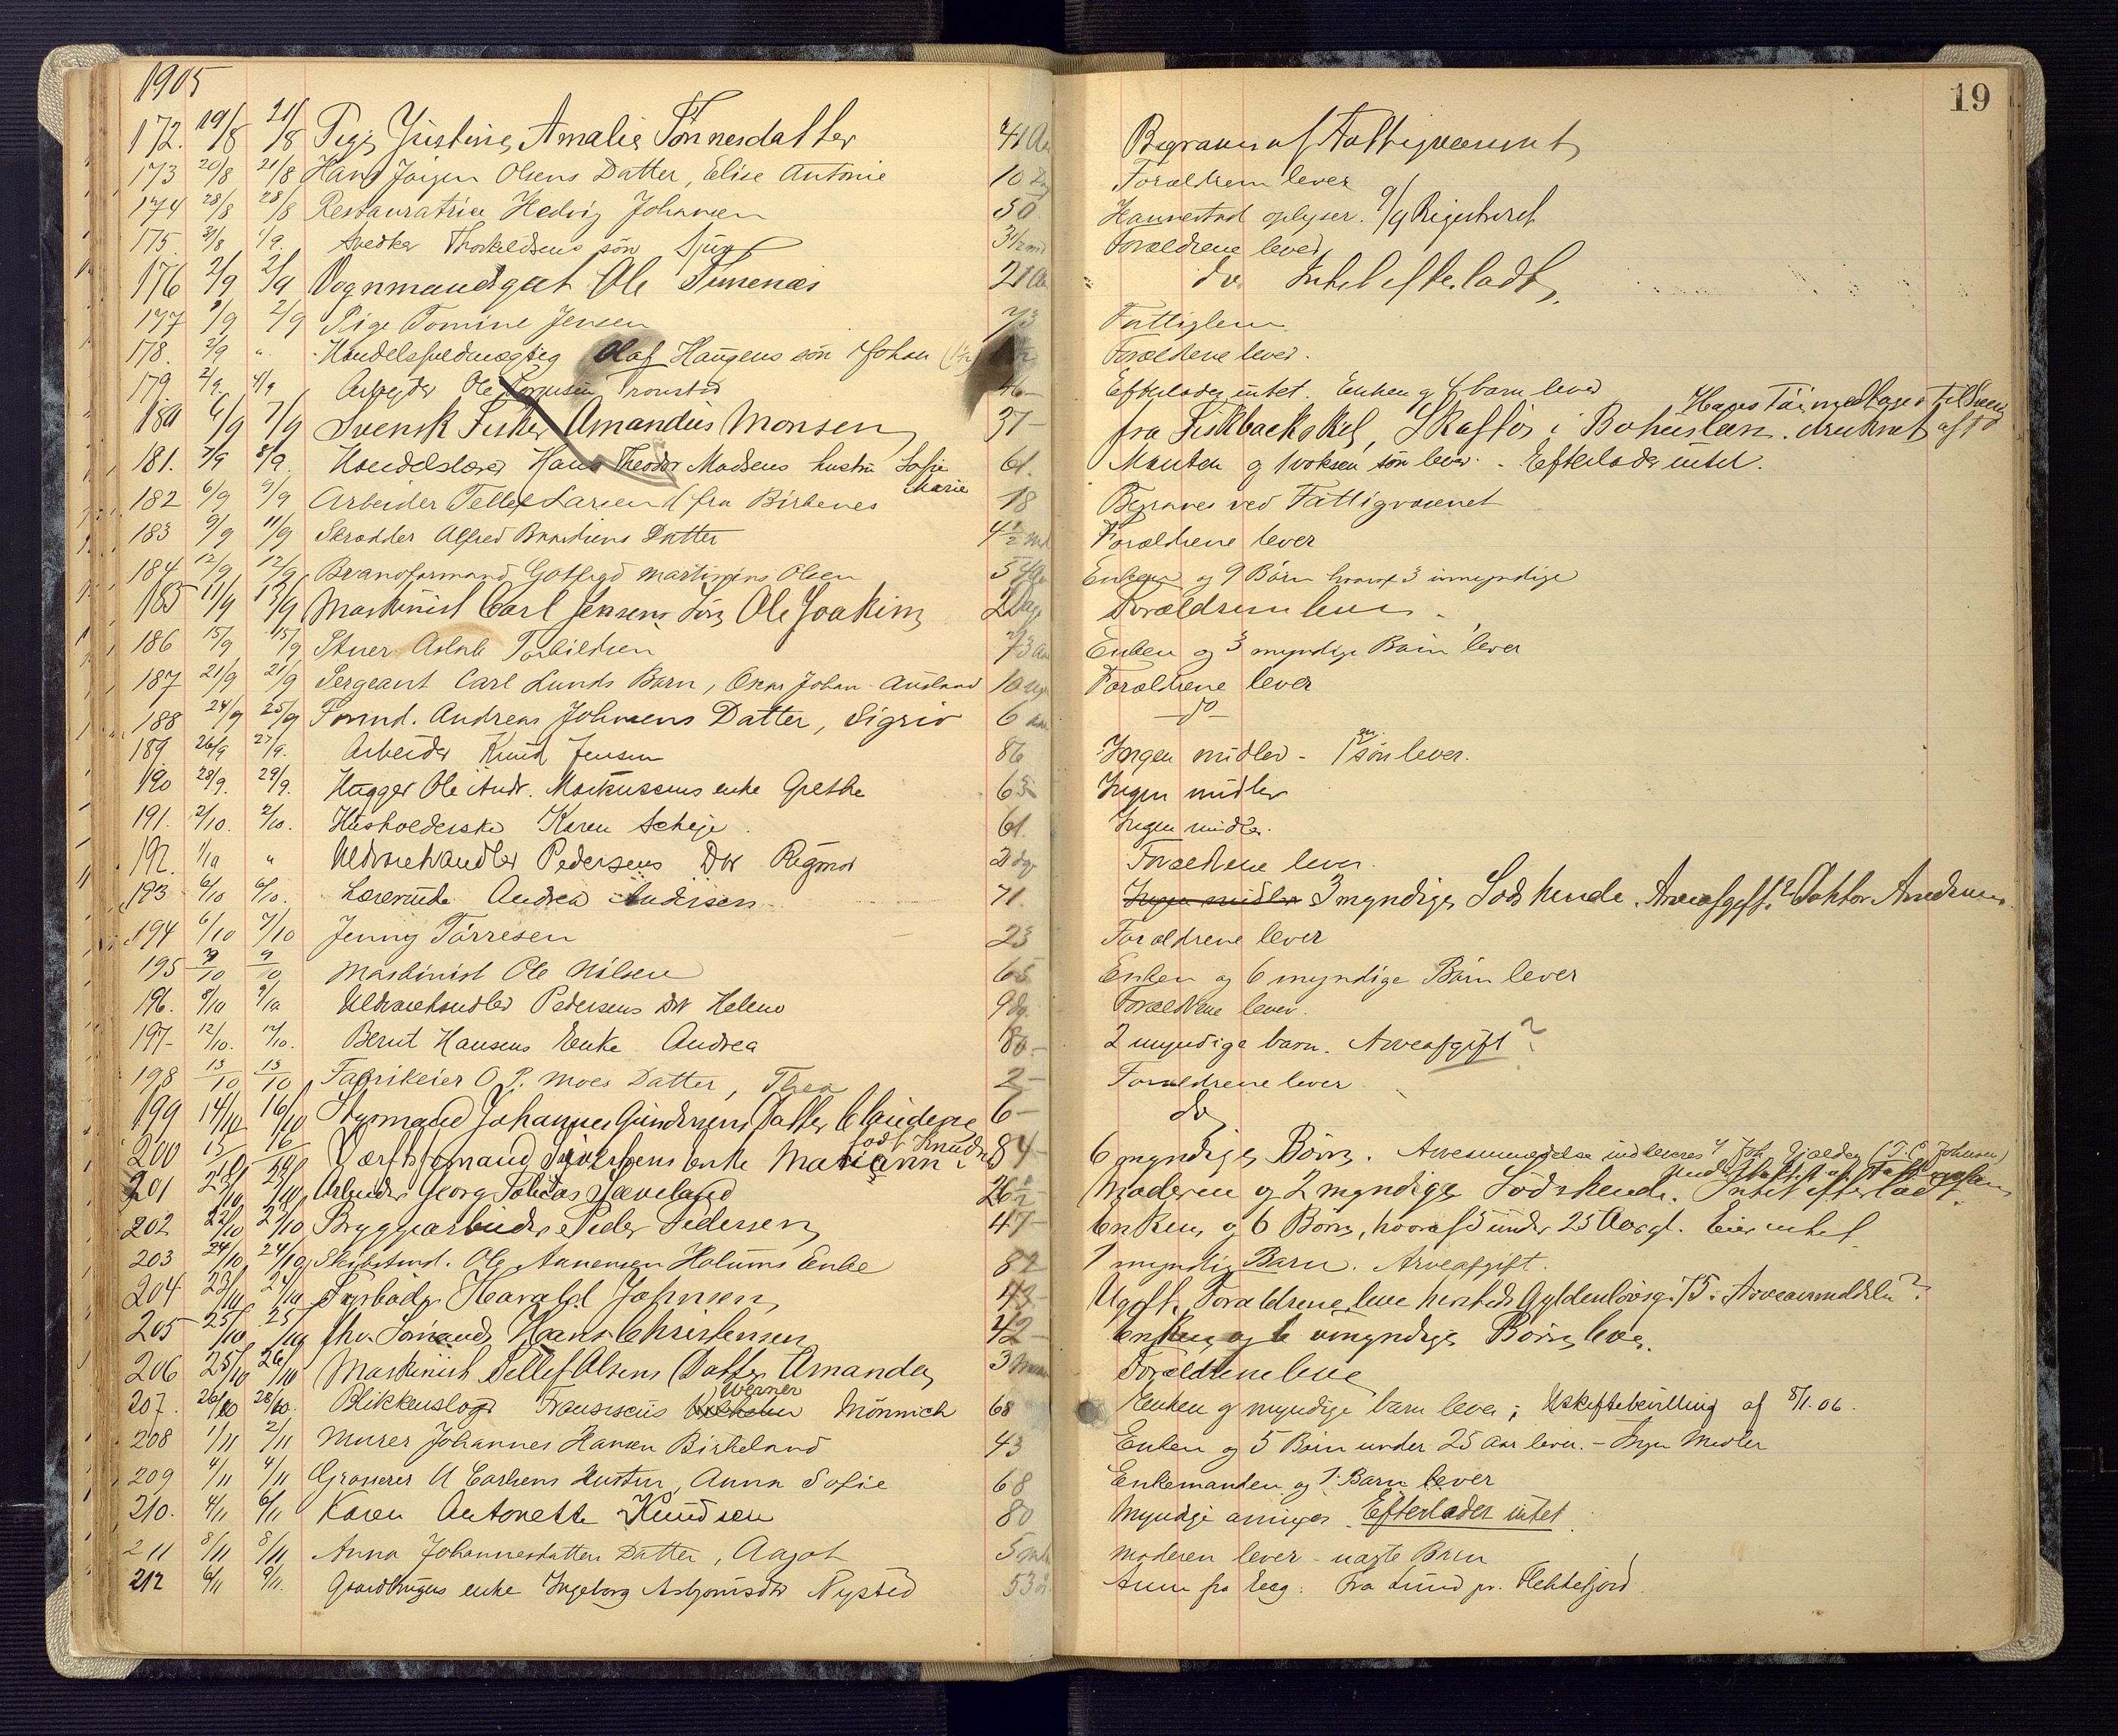 1905
19
172. 19/8 21/8 Pige Justine Amalie Tønnesdatter 41 Aar Begraves af Fattigvæsenet
173 20/8 21/8 Hans Jørgen Olsens Datter, Elise Antonie 10 Forældrene lever
174 28/8 28/8 Restauratrice Hedvig Johansen 50 Hannestad oplyser. 9/9 Registreret
175. 31/8 1/9. Thorkildsens søn Sjur 3 1/2 md Forældrene lever
176 2/9 2/9 Vognmandsgut Ole Timenæs 21 Aar do Intet efterladt
177 1/9 2/9 Pige Tomine Jensen 73 Fattiglem
178. 2/9 " Handelsfuldmægtig Olaf Haugens søn Johan Forældrene lever.
179. 2/9. 4/9 Arbeyder Ole Tronstad 46- Efterlader intet. Enken og 4 barn lever
180 6/9 7/9 Svensk Fisker Amandus Monsen 37- fra Fiskbackskel, Skaftø i Bohuslæn. druknet
181. 7/9 8/9. Handelslærer Hans Theodor Madsens hustru Sofie Marie 61. Manden og 1 voksen søn lever. - Efterlader intet.
182 6/9 9/9 Arbeider Tellef Larsen fra Birkenes 18 Begraves ved Fattigvæsenet
183 9/9 11/9 Skrædder Alfred Datter 4 1/2 md Forældrene lever
184 12/9 12/9 Brandformand Gotfred Martinius Olsen 54 Aar Enken og 9 Børn hvoraf 3 umyndige
185 11/9 13/9 Maskinist Carl Jensens Søn Ole Joakim 2 Dage Forældrene lever
186 15/9 15/9 Aslak Torkildsen 73 Aar Enken og 3 myndige Børn lever
187 21/9 21/9 Sergeant Carl Lunds Barn, Oskar Johan Ausland 10 Forældrene lever
188 24/9 25/9 Formd. Andreas Johnsens Datter, Sigrid 6 do
189 26/9 27/9. Arbeider Knud Jensen 86 Ingen midler - 1 søn lever.
190 28/9. 29/9. Hugger Ole Andr. Markussens enke Grethe 65 Ingen midler
191. 2/10. 2/10. Husholderske Karen Scheje. 61. Ingen midler.
192. 1/10 " Uldvarehandler Pedersens Dtr Ragnvor 2 dg Forældrene lever.
193 6/10 6/10. Lærerinde Andrea Andersen 71. Ingen midler 3 myndige Sødskende. Arveafgift? Doktor Andersen.
194 6/10 7/10 Jenny Tørresen 23 Forældrene lever
195 7/10 9/10 Maskinist Ole Nilsen 65 Enken og 6 myndige Børn lever
196. 8/10 9/10 Uldvarehandler Pedersens Dtr Helene 9 dg. Forældrene lever.
197- 12/10. 12/10. Bernt Hansens Enke Andrea 80.- 2 myndige barn. Arveafgift?
198 13/10 13/10 Fabrikeier O. P. Moes Datter, Thea 2- Forældrene lever
199 14/10 16/10 Styrmand Johannes Gundersens Datter Claudine 6- do
200 15/10 16/10 Værftsformand Syvertsens enke Mariann født Knuds 84- 6 myndige Børn. Arveanmeldelse indleveres
201 23/10 24/10 Arbeider Georg Tobias Sæveland 26 1/2 Moderen og 2 myndige Sødskende. Intet efterladt.
202 22/10 23/10 Bryggearbeider Peder Pedersen 47- Enken og 6 Børn, hvoraf 5 under 25 Aar gl. Eier intet
203 24/10 24/10 Skibstmd. Ole Aanensen Holums Enke 82 1 myndig Barn. Arveafgift.
204 23/10 24/10 Fyrbøder Harald Johnsen 43- Ugift, Forældrene leve hersteds Gyldenløvsg. 75. Arveanmeldelse?
205 25/10 25/10 fhv. Sømand Hans Christensen 42- Enken og 6 umyndige Børn leve.
206 25/10 26/10 Maskinist Tellef Olsens Datter Amanda 3 Forældrene leve
207. 26/10 28/10. Blikkenslager Fransiscus Werner Mönnich 68 Enken og myndige barn lever; Uskiftebevilling af 8/1. 06.
208 1/11 2/11 Murer Johannes Hansen Birkeland 43 Enken og 5 Børn under 25 Aar lever. - Ingen Midler
209 4/11 4/11 Grosserer U Carlsens Hustru, Anna Sofie 68 Enkemanden og 1 Barn lever
210. 4/11 6/11 Karen Antonette Knudsen 80 Myndige arvinger. Efterlader intet.
211 8/11 8/11 Anna Johannesdatters Datter, Aagot 5 mdr moderen lever - uægte Barn
212 6/11 9/11. Gaardbrugers enke Ingeborg Asbjørnsdtr Nysted 53 år Fra Lund pr. Flekkefjord.